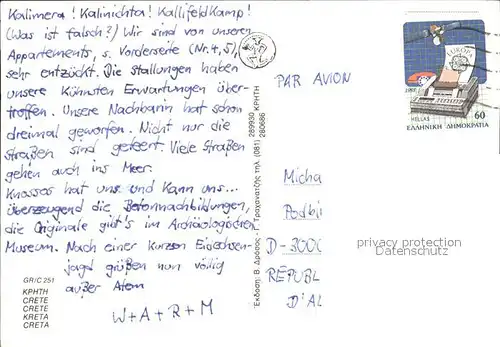 Kalimera! Kalinichta! Kallifeldkamp!
(Was ist falsch?) Wir sind von unseren
Appartements, s. Vorderseite (Nr. 4, 5),
sehr entzückt. Die Stallungen haben
unsere kühnsten Erwartungen über-
troffen. Unsere Nachbarin hat schon
dreimal geworfen. Nicht nur die
Straßen sind geteert. Viele Straßen
gehen auch ins Meer.
Knossos hat uns und kann uns...
überzeugend die Betonnachbildungen,
die Originale gibt's im Archäologischen
Museum. Nach einer kurzen Eidechsen-
jagd grüßen nun völlig
außer Atem
W+A+R+M
GR/C 251
ΚΡΗΤΗ
CRETE
CRETE
KRETA
CRETA
Έκδοση: Β. Δρόσος - Γ. Τραχανατζής τηλ. (081) 289930 280686 ΚΡΗΤΗ
PAR AVION
EUROPA
1988
60
HELLAS
ΕΛΛΗΝΙΚΗ ΔΗΜΟΚΡΑΤΙΑ
Micha
Podbi
D-3000
REPUBL
D'AL
privacy protection
Datenschutz